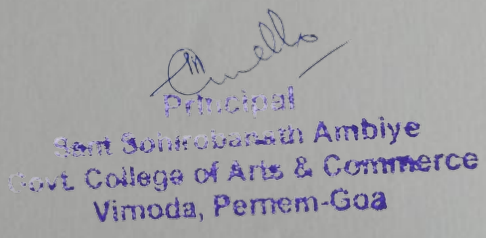 Principal
Sant Sohirobanath Ambiye
Govt. College of Arts & Commerce
Virnoda, Pernem-Goa